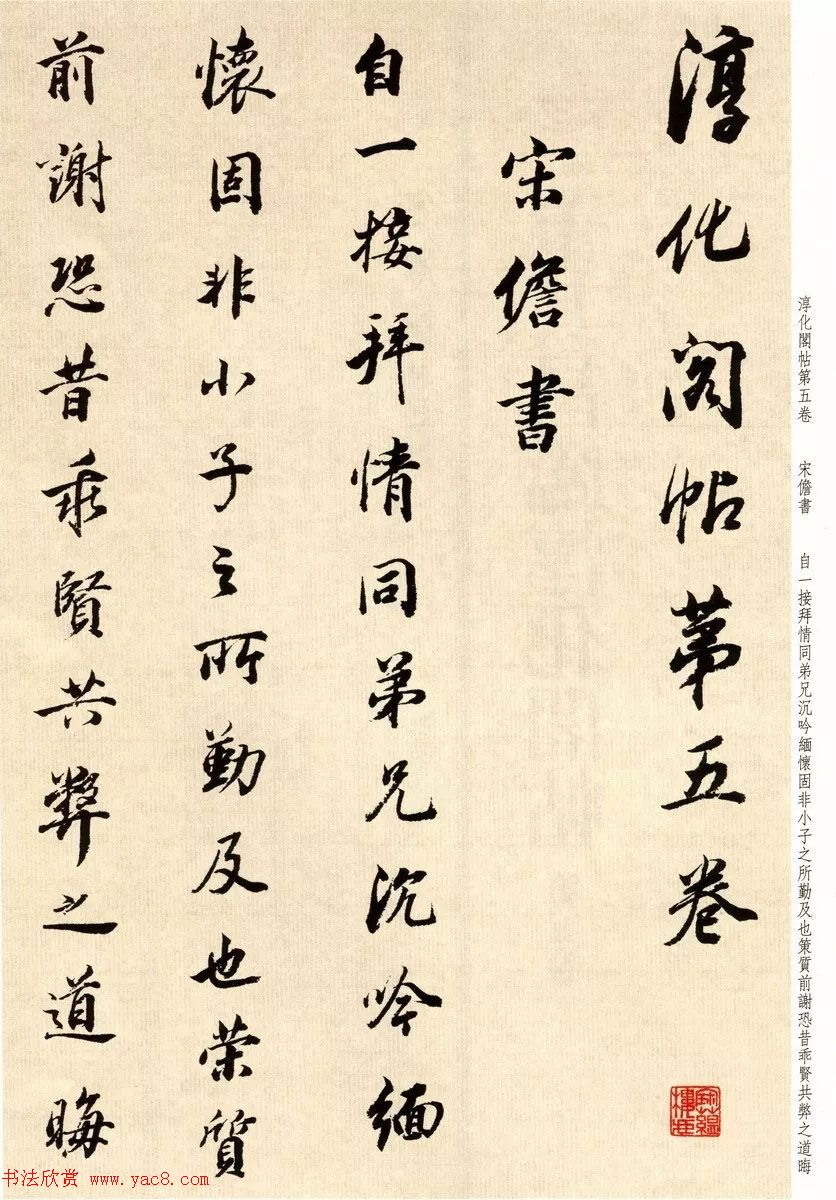 淳化閣帖第五卷　宋儋書　自一接拜情同弟兄沉吟緬懷固非小子之所勤及也策質前謝恐昔乖賢共弊之道晦
淳化閣帖第五卷
宋儋書
自一接拜情同弟兄沉吟緬
懷固非小子之所勤及也策質
前謝恐昔乖賢共弊之道晦
书法欣赏 www.yac8.com